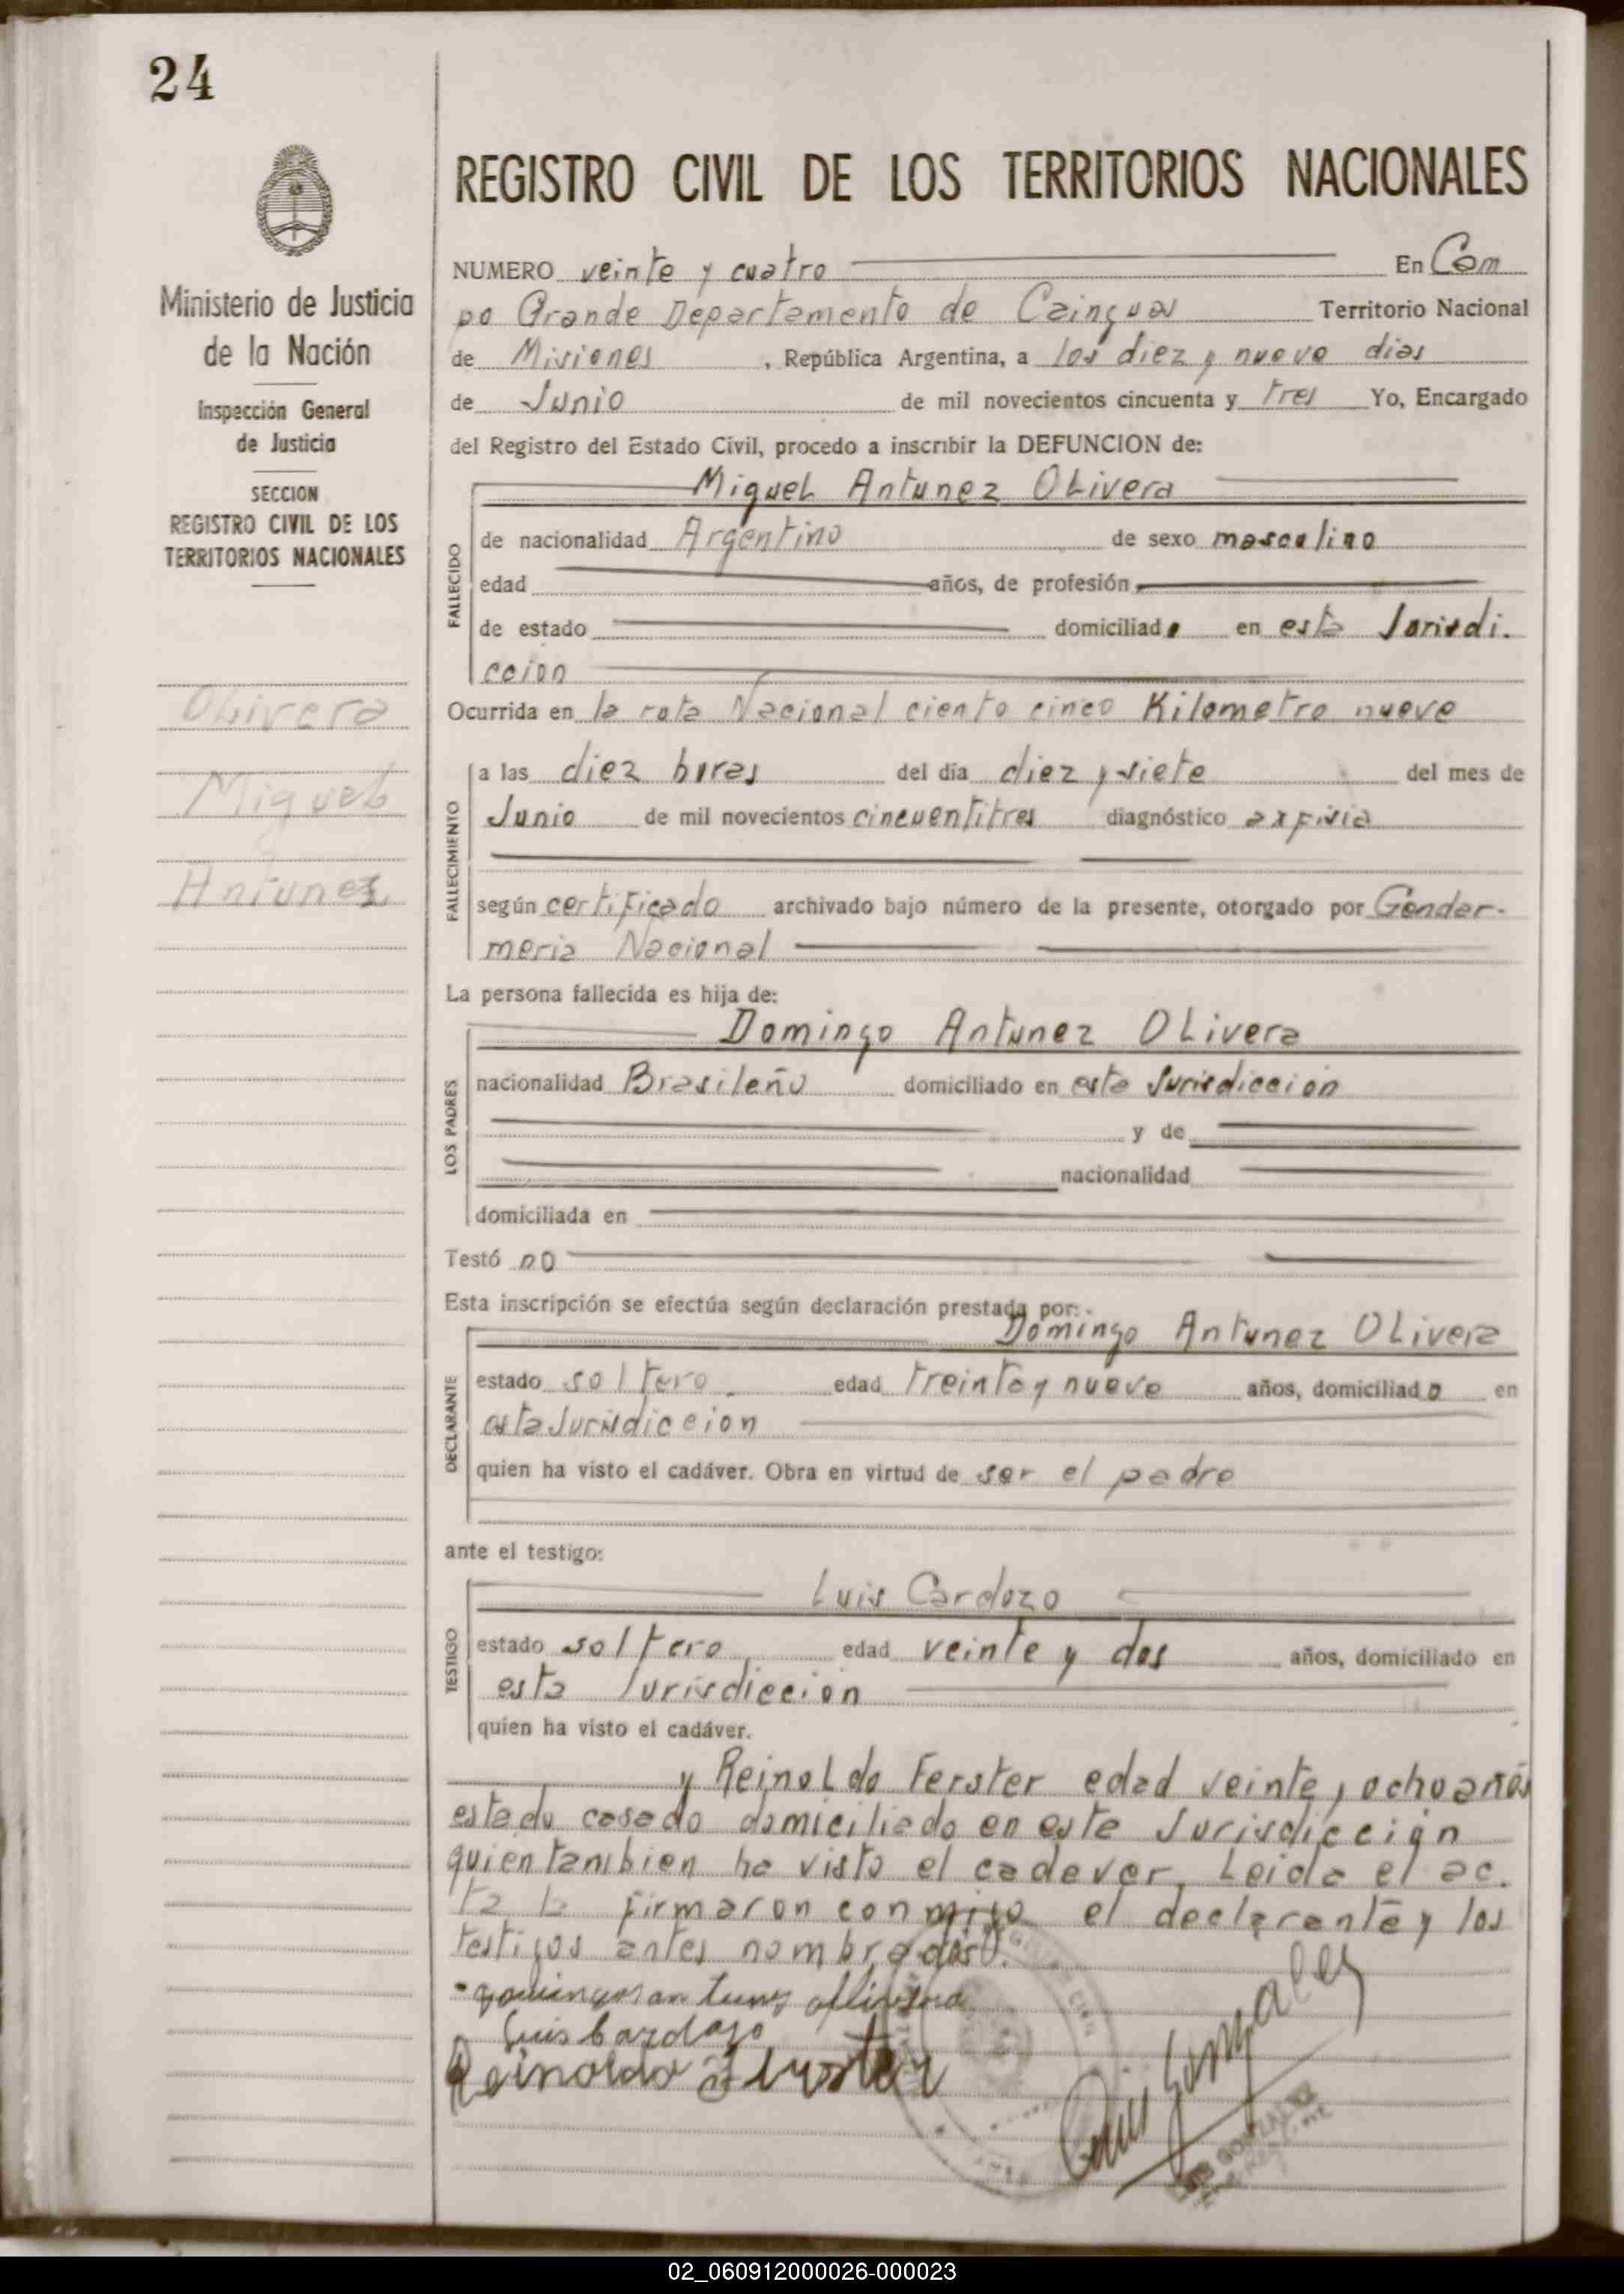 24
REGISTRO CIVIL DE LOS TERRITORIOS NACIONALES
Ministerio de Justicia
de la Nación
Inspección General
de Justicia
SECCION
REGISTRO CIVIL DE LOS
TERRITORIOS NACIONALES
OLivera
MigueL
Antunez
NUMERO veinte y cuatro En Cam
po Grande Departamento de Cainguas Territorio Nacional
de Misiones, República Argentina, a los diez y nueve dias
de Junio de mil novecientos cincuenta y tres Yo, Encargado
del Registro del Estado Civil, procedo a inscribir la DEFUNCION de:
MigueL Antunez OLivera
FALLECIDO
de nacionalidad Argentino de sexo masculino
edad años, de profesión
de estado domiciliado en esta Jurisdi.
ccion
Ocurrida en la ruta Nacional ciento cinco Kilometro nueve
FALLECIMIENTO
a las diez horas del día diez y siete del mes de
Junio de mil novecientos cincuentitres diagnóstico axfisia
según certificado archivado bajo número de la presente, otorgado por Gendar-
meria Nacional
La persona fallecida es hija de:
Domingo Antunez OLivera
LOS PADRES
nacionalidad Brasileño domiciliado en esta Jurisdiccion
y de
nacionalidad
domiciliada en
Testó no
Esta inscripción se efectúa según declaración prestada por:
Domingo Antunez OLivera
DECLARANTE
estado soltero edad treinta y nueve años, domiciliado en
esta Jurisdiccion
quien ha visto el cadáver. Obra en virtud de ser el padre
ante el testigo:
Luis Cardozo
TESTIGO
estado soltero edad veinte y dos años, domiciliado en
esta Jurisdiccion
quien ha visto el cadáver.
y ReinoLdo Ferster edad veinte y ocho años
estado casado domiciliado en esta Jurisdiccion
quien tambien ha visto el cadaver. Leida el ac.
ta la firmaron conmigo el declarante y los
testigos antes nombrados.
Luis Cardozo
Reinoldo
Luis Gonzalez
GONZALEZ
02_060912000026-000023